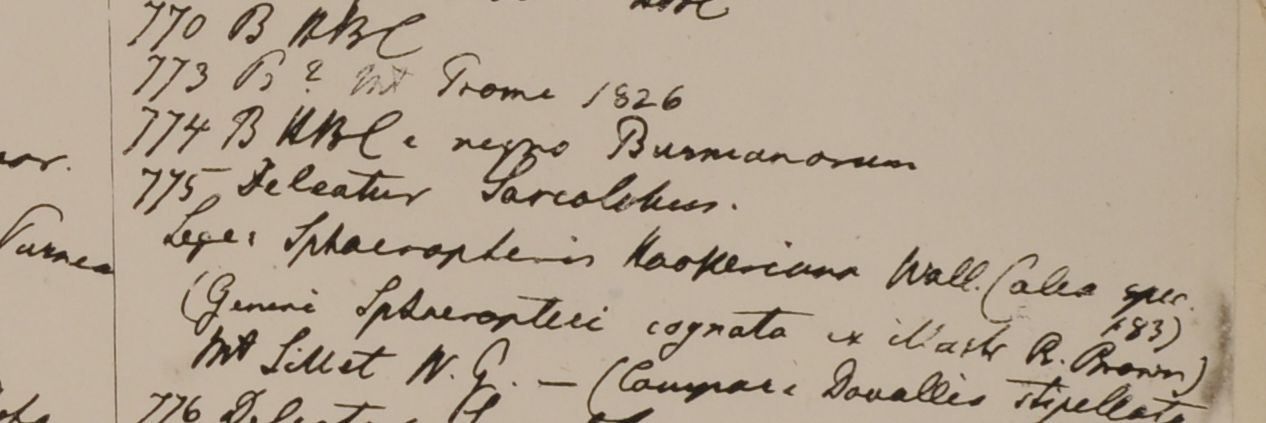 770 B HBC
773 B? Mt Prome 1826
774 B HBC e regno Burmanorum
775 Deleatur Sarcolobus.
Lege: Sphaeropteris Hookeriana Wall. (alea spec. 183)
(Generi Sphaeropteri cognata ex illustr R. Brown)
Mt Sillet W. G. — (Compare Davallia stipellata
776